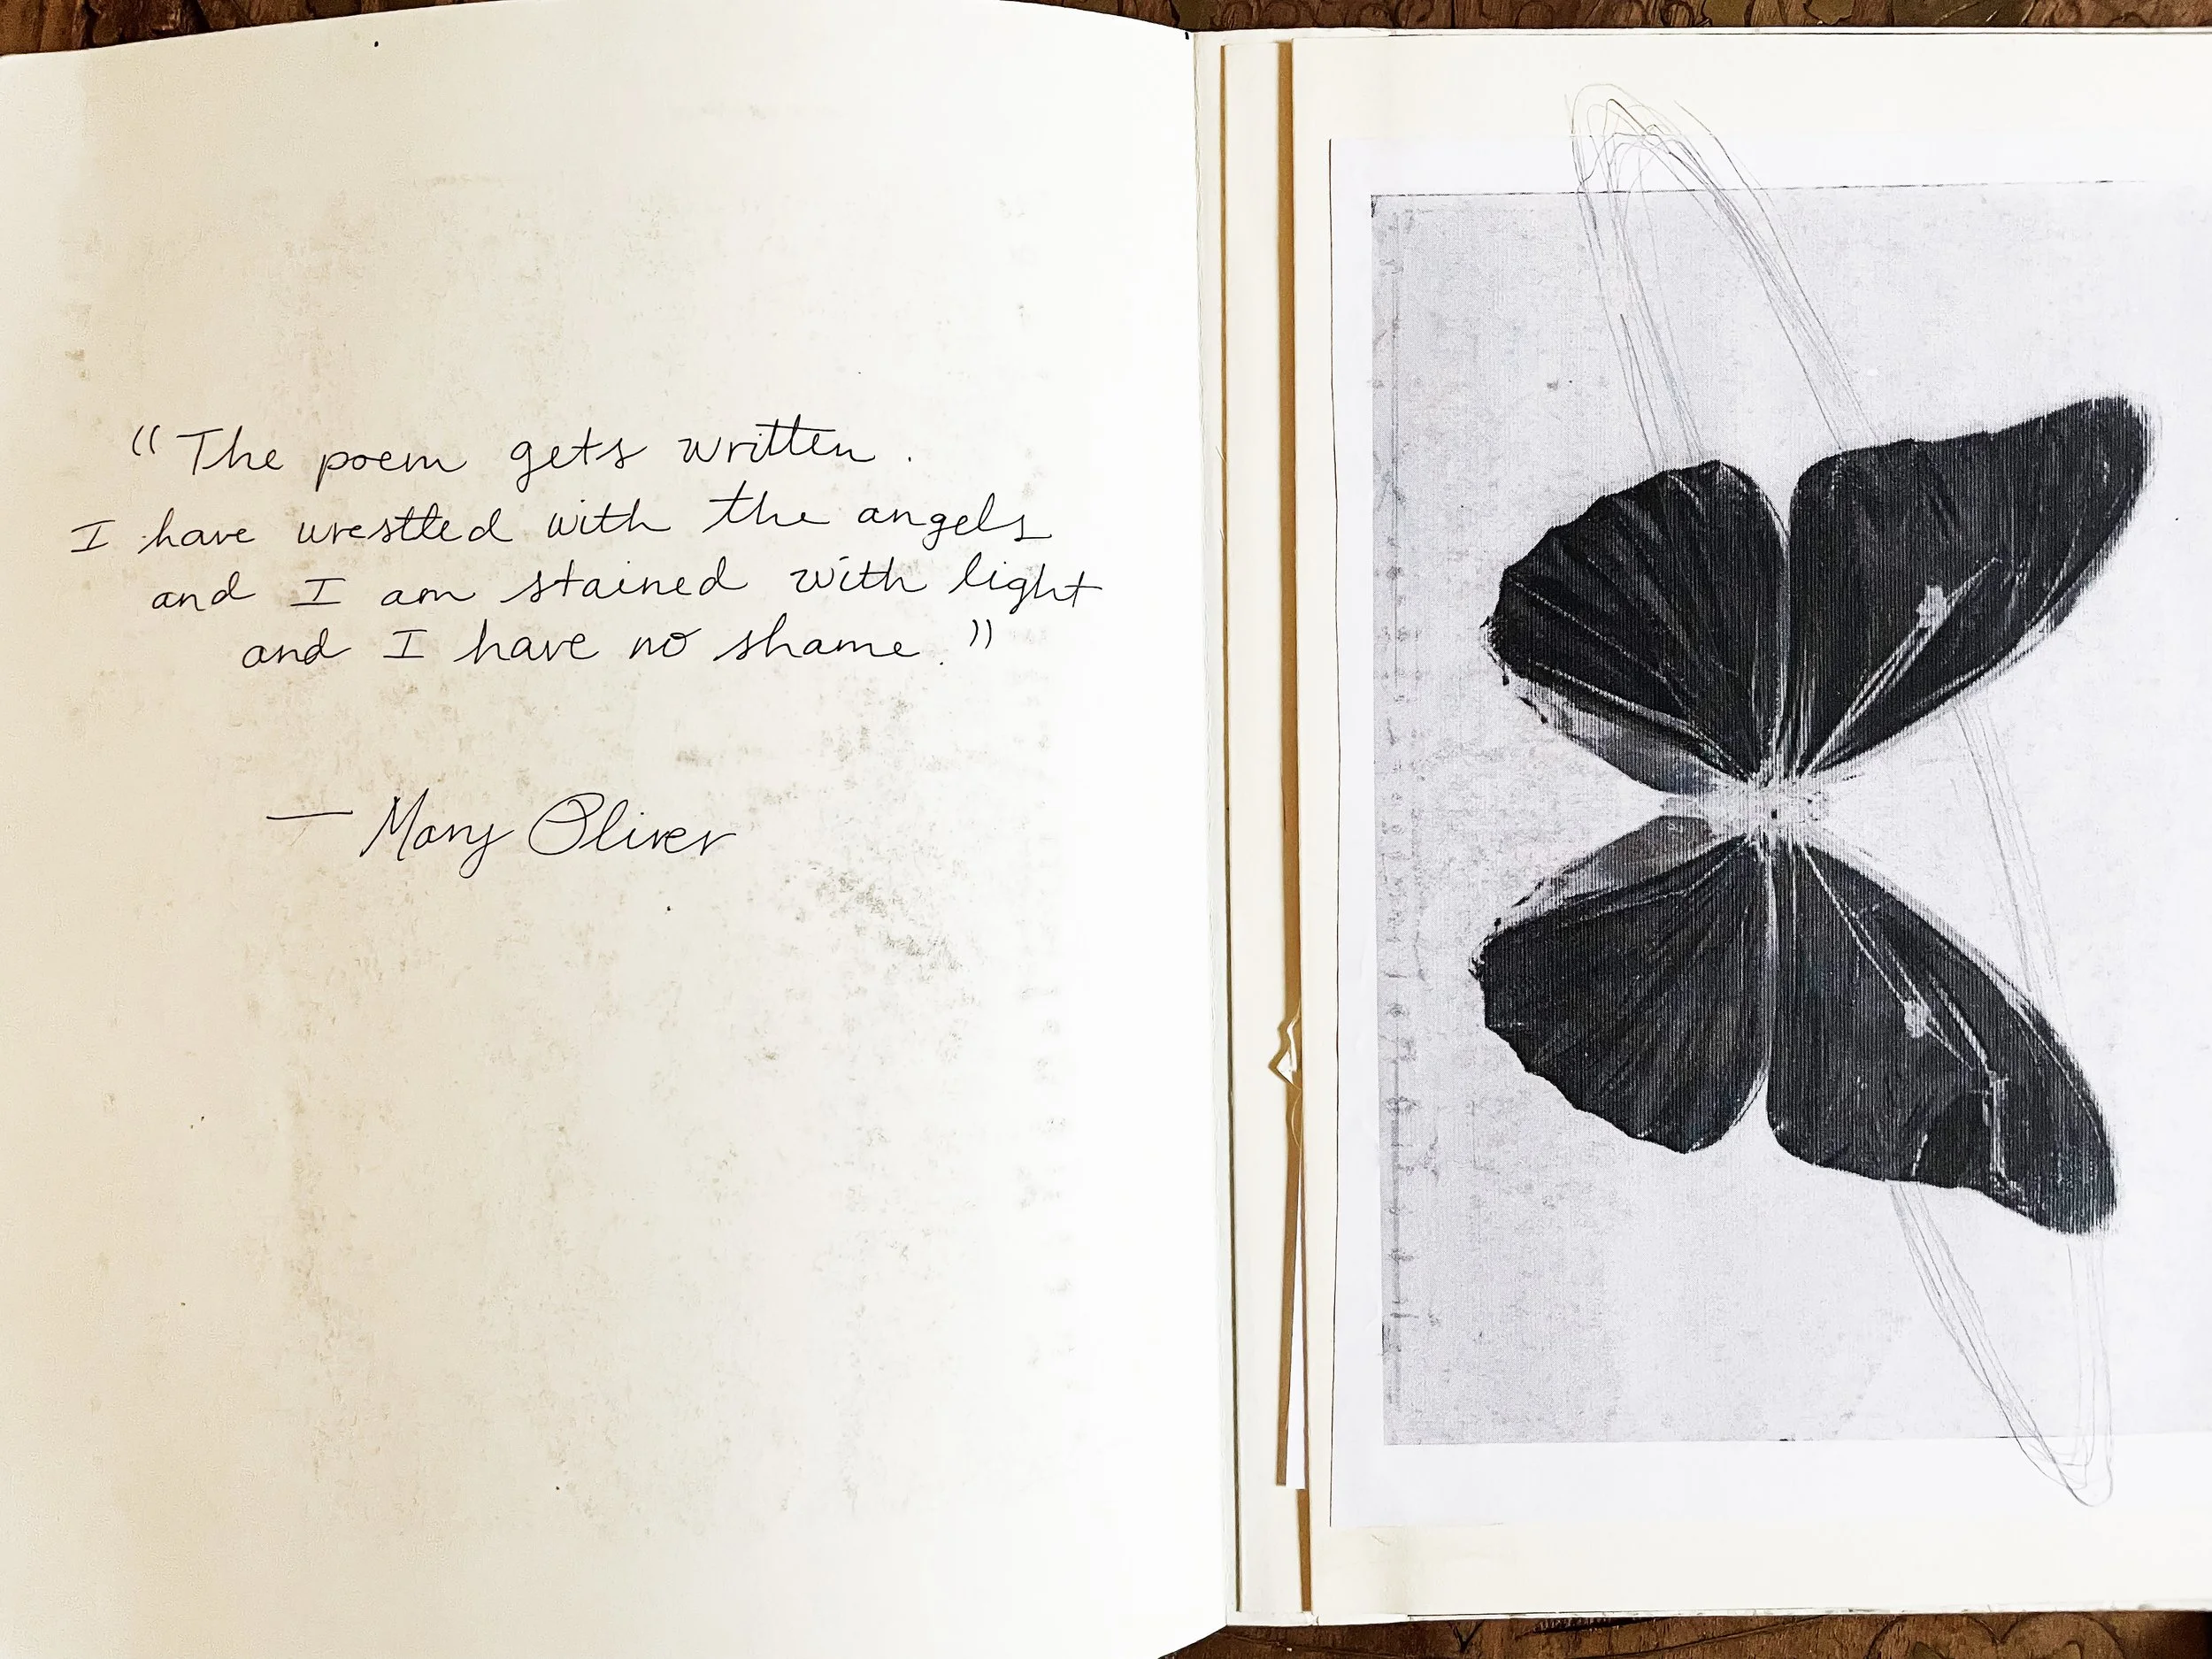 "The poem gets written.
I have wrestled with the angels
and I am stained with light
and I have no shame."
— Mary Oliver